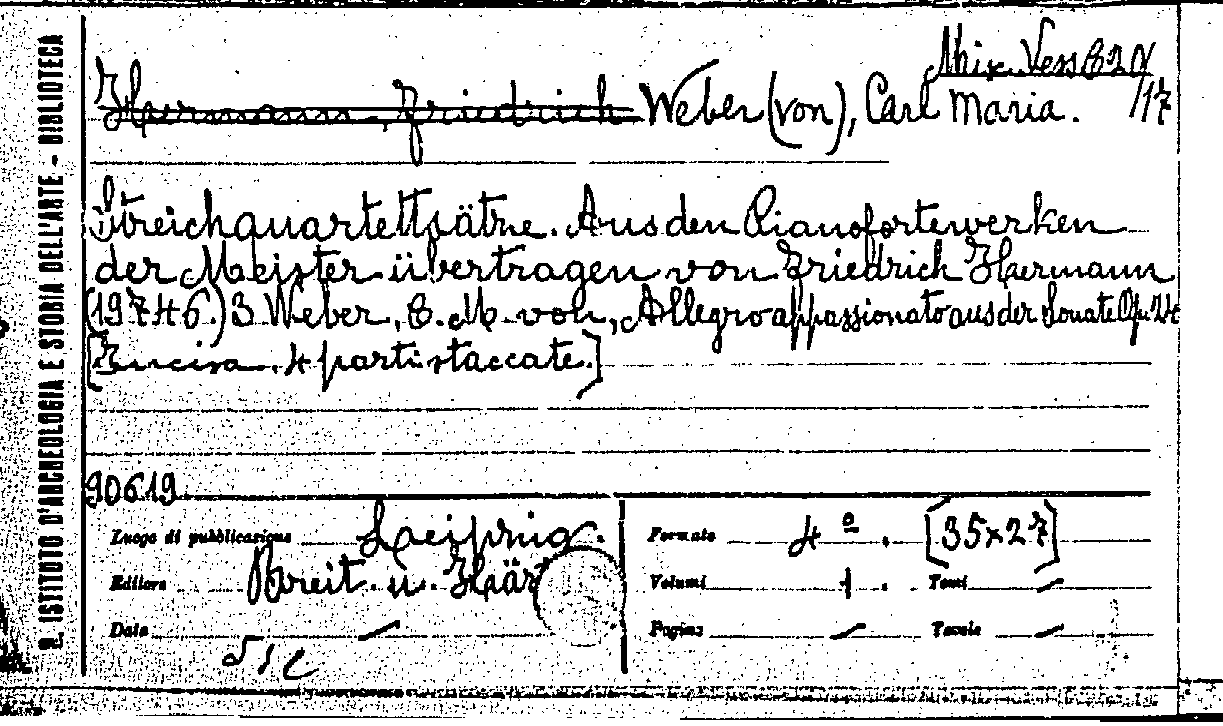 R. ISTITUTO D'ARCHEOLOGIA E STORIA DELL'ARTE - BIBLIOTECA
Mix. Vess 820/
/17
Hermann, Friedrich Weber (von), Carl Maria.
Streichquartettsätze. Aus den Pianofortewerken
der Meister übertragen von Friedrich Hermann
(19746.) 3 Weber, C. M. von, Allegro appassionato aus der Sonate Op. 24
[Incisa. 4 parti staccate.]
90619
Luogo di pubblicazione Leipzig.
Editore Breit. u. Härt
Data /
Formato 4º. [35x27]
Volumi 1. Tomi /
Pagine / Tavole /